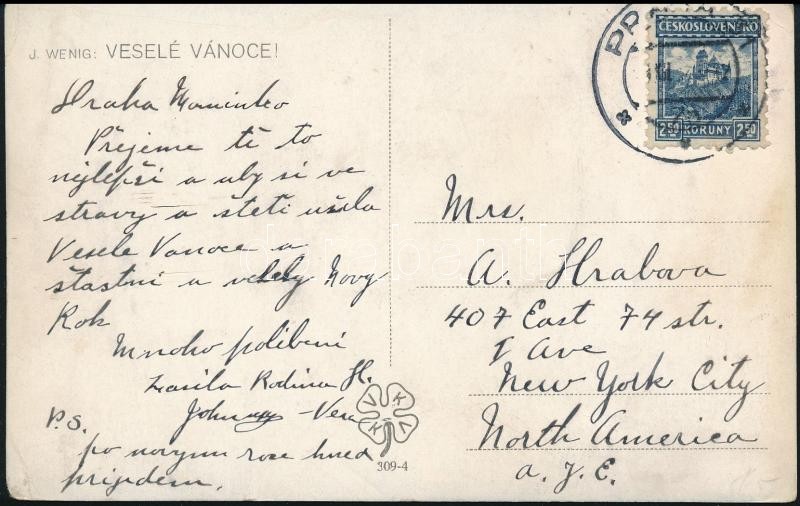 J. WENIG: VESELÉ VÁNOCE!
Draha Maminko
Přejeme tě to
nejlepší a aby si ve
zdravy a štětí užila
Vesele Vanoce a
štastni a vesely Novy
Rok
Mnoho polibeni
zasila Rodina H.
Johnny - Vera
P.S.
po novym roce hned
prijedem.
VKVK
309-4
PR
ČESKOSLOVENSKO
2.50 KORUNY 2.50
Mrs.
A. Hrabova
407 East 74 str.
I Ave
New York City
North America
a. J. E.